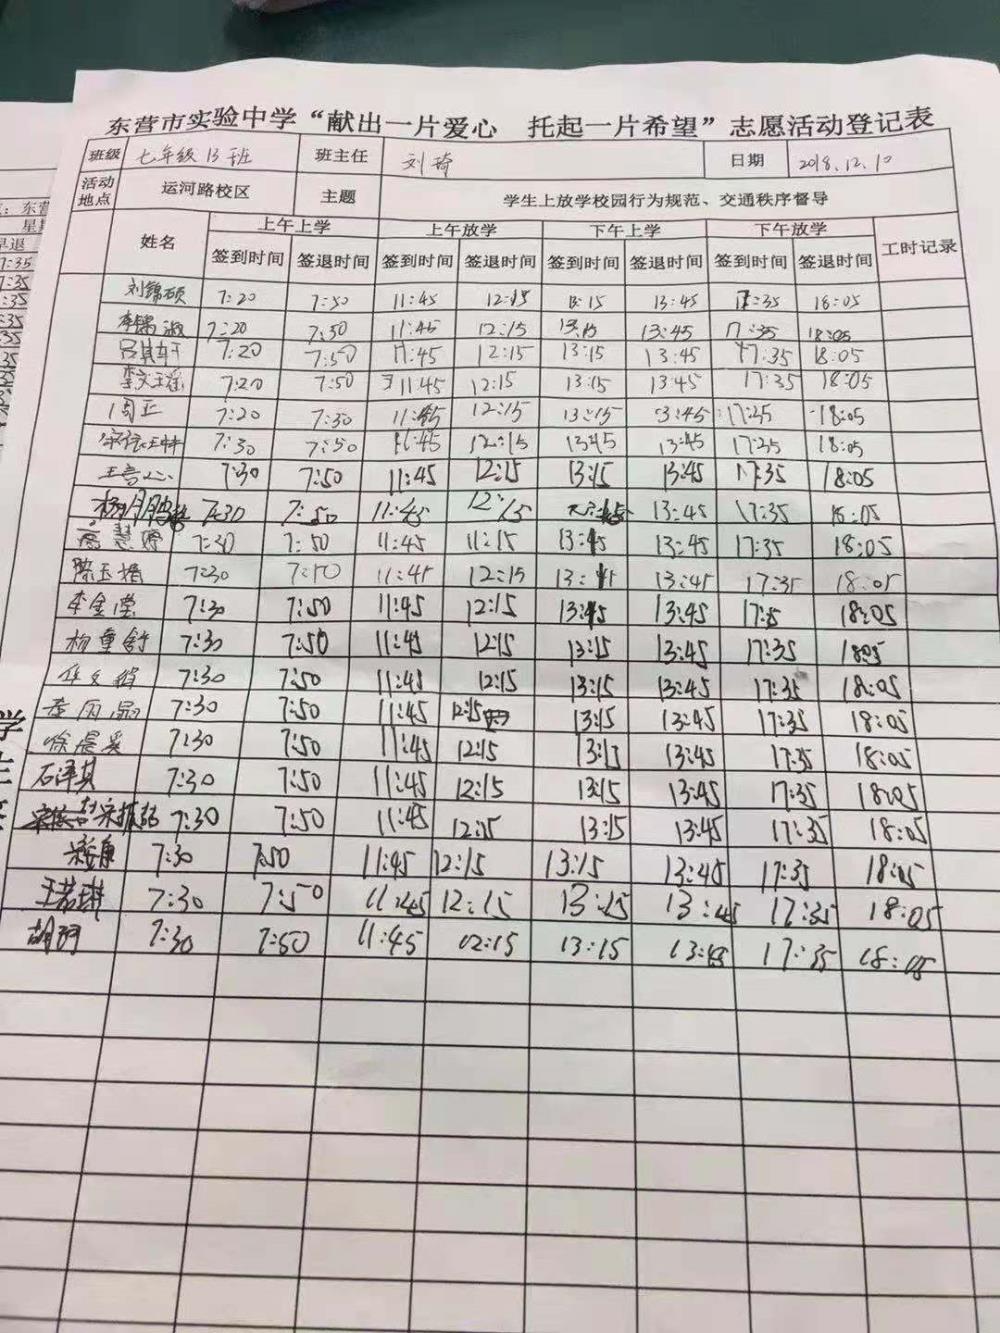 东营市实验中学“献出一片爱心 托起一片希望”志愿活动登记表
班级 七年级13班 班主任 刘琦 日期 2018.12.10
活动地点 运河路校区 主题 学生上放学校园行为规范、交通秩序督导
姓名 上午上学 上午放学 下午上学 下午放学 工时记录
签到时间 签退时间 签到时间 签退时间 签到时间 签退时间 签到时间 签退时间
刘锦硕 7:20 7:50 11:45 12:15 13:15 13:45 17:35 18:05
李锦淑 7:20 7:50 11:45 12:15 13:15 13:45 17:35 18:05
吕其轩 7:20 7:50 11:45 12:15 13:15 13:45 17:35 18:05
李文瑶 7:20 7:50 11:45 12:15 13:15 13:45 17:35 18:05
周正 7:20 7:30 11:45 12:15 13:15 13:45 17:35 18:05
7:30 7:50 11:45 12:15 13:15 13:45 17:35 18:05
7:30 7:50 11:45 12:15 13:15 13:45 17:35 18:05
7:30 7:50 11:45 12:15 13:45 17:35 18:05
高慧婷 7:30 7:50 11:45 11:15 13:15 13:45 17:35 18:05
陈玉婧 7:30 7:50 11:45 12:15 13:15 13:45 17:35 18:05
李金莹 7:30 7:50 11:45 12:15 13:15 13:45 18:05
杨重舒 7:30 7:50 11:45 12:15 13:15 13:45 17:35 18:05
7:30 7:50 11:45 12:15 13:15 13:45 17:35 18:05
7:30 7:50 11:45 12:15 13:15 13:45 17:35 18:05
徐晨奚 7:30 7:50 11:45 12:15 13:15 13:45 17:35 18:05
石泽其 7:30 7:50 11:45 12:15 13:15 13:45 17:35 18:05
宋振弘 7:30 7:50 11:45 12:15 13:15 13:45 17:35 18:05
7:30 7:50 11:45 12:15 13:15 13:45 17:35 18:05
王若琪 7:30 7:50 11:45 12:15 13:15 13:45 17:35 18:05
胡珂 7:30 7:50 11:45 12:15 13:15 13:45 17:35 18:05